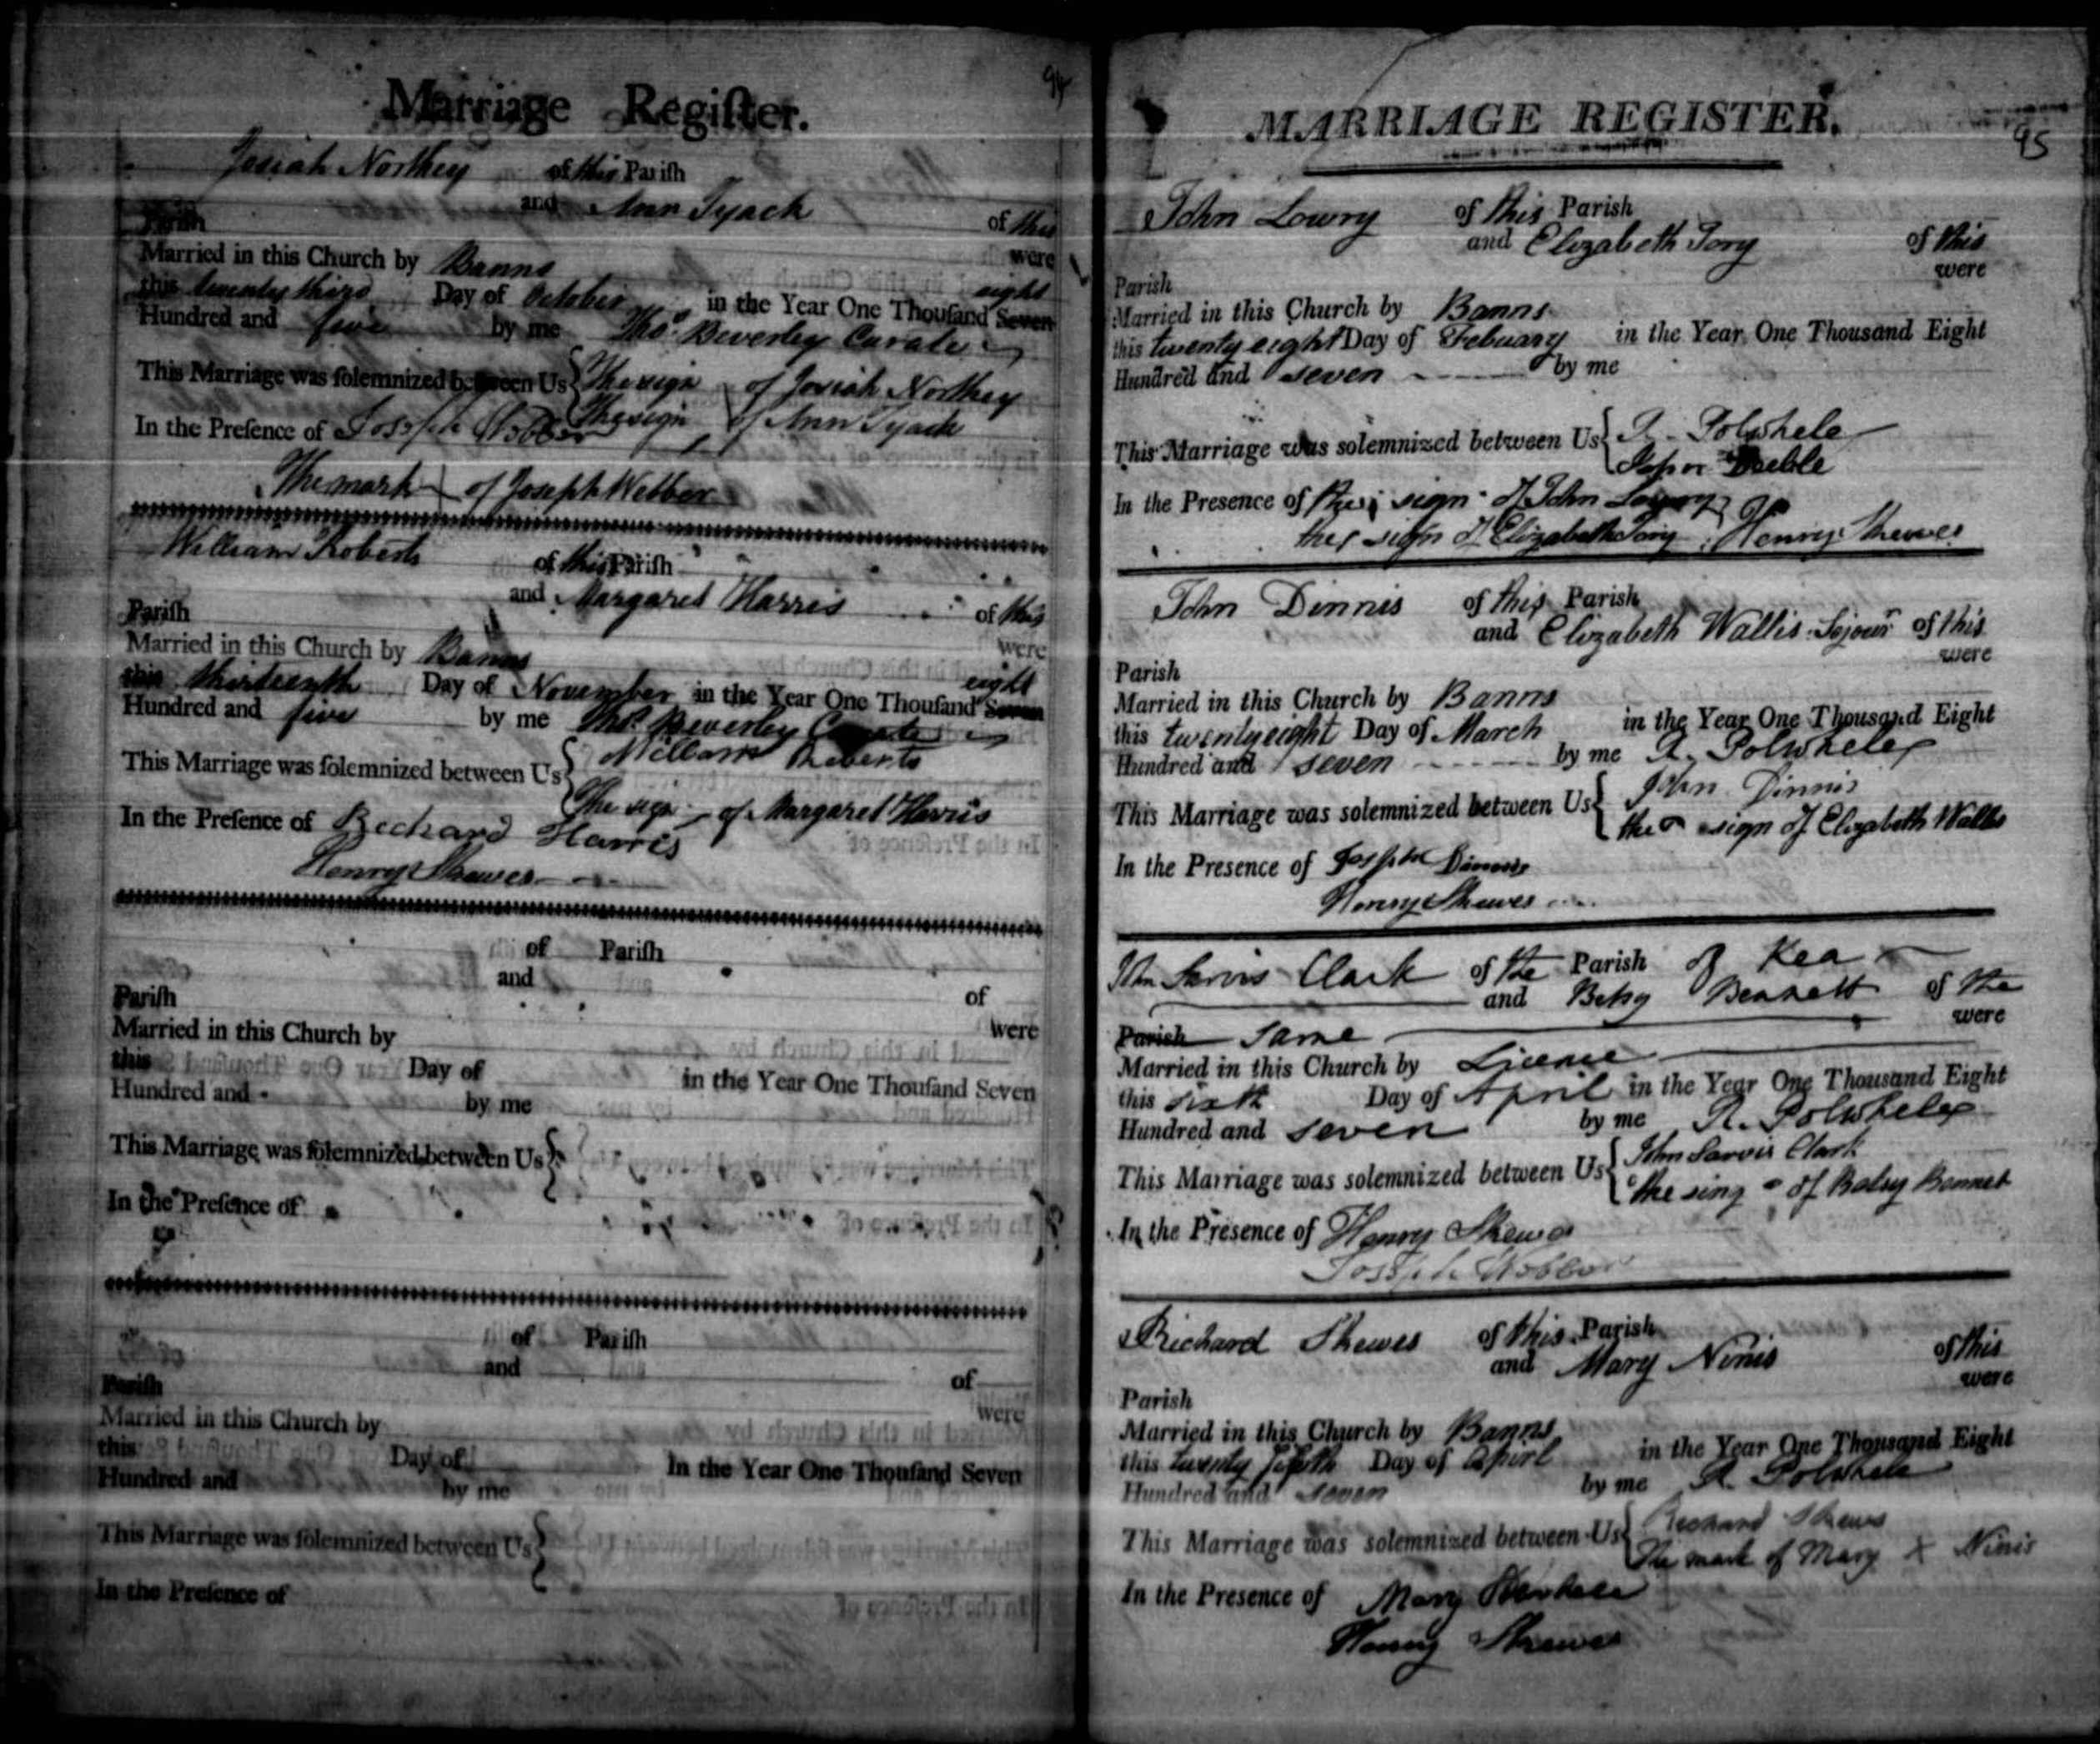 94
Marriage Regiſter.
Josiah Northey of this Pariſh
and Ann Tyack of this
Pariſh were
Married in this Church by Banns
this twenty third Day of October in the Year One Thouſand Seven eight
Hundred and five by me Thos. Beverley Curate
This Marriage was ſolemnized between Us The sign of Josiah Northey
The sign of Ann Tyack
In the Preſence of Joseph Webber
The mark of Joseph Webber
William Roberts of this Pariſh
and Margaret Harris of this
Pariſh were
Married in this Church by Banns
this thirteenth Day of November in the Year One Thouſand Seven eight
Hundred and five by me Thos. Beverley Curate
This Marriage was ſolemnized between Us William Roberts
The sign of Margaret Harris
In the Preſence of Richard Harris
Henry Skewes
of Pariſh
and
Pariſh of
were
Married in this Church by
this Day of in the Year One Thouſand Seven
Hundred and by me
This Marriage was ſolemnized between Us
In the Preſence of
of Pariſh
and
Pariſh of
were
Married in this Church by
this Day of In the Year One Thouſand Seven
Hundred and by me
This Marriage was ſolemnized between Us
In the Preſence of
95
MARRIAGE REGISTER.
John Lowry of this Parish
and Elizabeth Tory of this
were
Parish
Married in this Church by Banns
this twenty eight Day of Febuary in the Year One Thousand Eight
Hundred and seven by me
This Marriage was solemnized between Us R. Polwhele
In the Presence of the sign of John Lowry
the sign of Elizabeth Tory Henry Skewes
John Dinnis of this Parish
and Elizabeth Wallis Sojour of this
were
Parish
Married in this Church by Banns
this twenty eight Day of March in the Year One Thousand Eight
Hundred and seven by me R. Polwhele
This Marriage was solemnized between Us John Dinnis
the sign of Elizabeth Wallis
In the Presence of Joseph Dinnis
Henry Skewes
John Jarvis Clark of the Parish of Kea
and Betsy Bennett of the
were
Parish same
Married in this Church by Licence
this sixth Day of April in the Year One Thousand Eight
Hundred and seven by me R. Polwhele
This Marriage was solemnized between Us John Jarvis Clark
the sing of Betsy Bennet
In the Presence of Henry Skewes
Joseph Webber
Richard Skewes of this Parish
and Mary Ninis of this
were
Parish
Married in this Church by Banns
this twenty fifth Day of Apirl in the Year One Thousand Eight
Hundred and seven by me R. Polwhele
This Marriage was solemnized between Us Richard Skews
The mark of Mary X Ninis
In the Presence of Mary
Henry Skewes